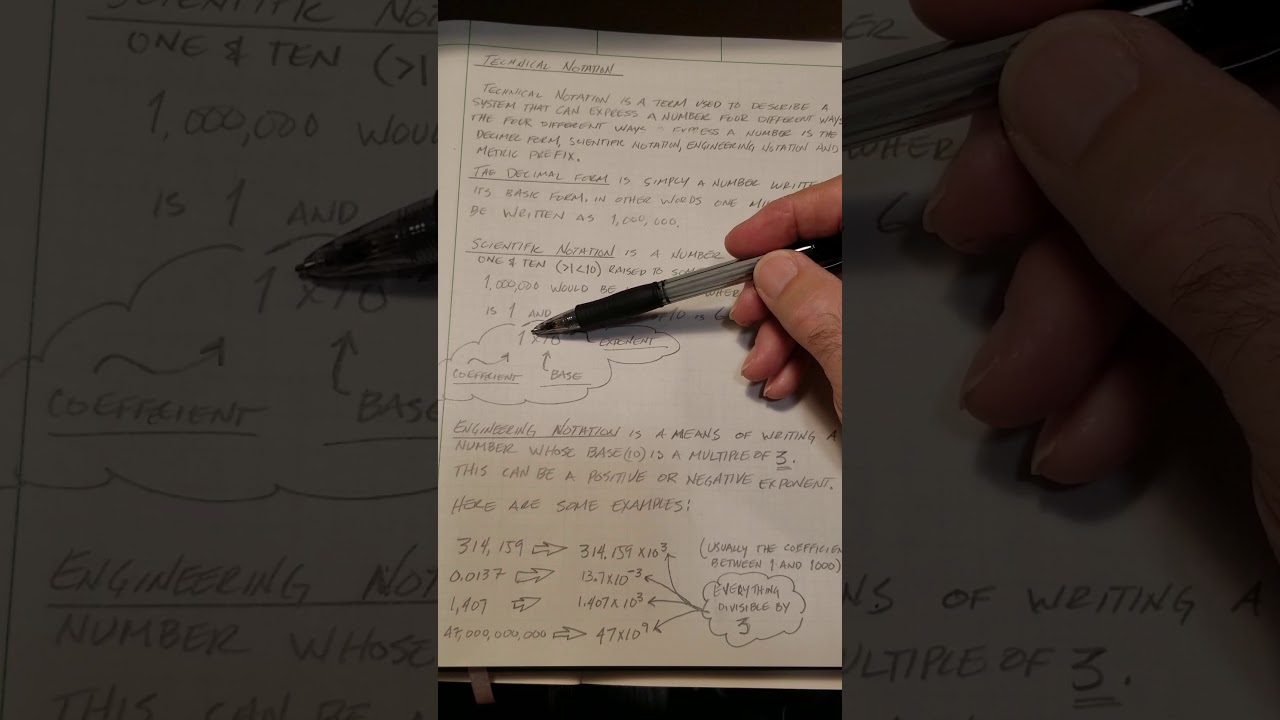 TECHNICAL NOTATION
TECHNICAL NOTATION IS A TERM USED TO DESCRIBE A
SYSTEM THAT CAN EXPRESS A NUMBER FOUR DIFFERENT WAYS
THE FOUR DIFFERENT WAYS EXPRESS A NUMBER IS THE
DECIMEL FORM, SCIENTIFIC NOTATION, ENGINEERING NOTATION AND
METRIC PREFIX.
THE DECIMAL FORM IS SIMPLY A NUMBER
ITS BASIC FORM. IN OTHER WORDS ONE
BE WRITTEN AS 1,000,000.
SCIENTIFIC NOTATION IS A NUMBER
ONE & TEN (>1<10) RAISED TO
1,000,000 WOULD BE
IS 1 AND 10 IS 6
1 x 10
EXPONENT
COEFFICIENT BASE
ENGINEERING NOTATION IS A MEANS OF WRITING A
NUMBER WHOSE BASE(10) IS A MULTIPLE OF 3.
THIS CAN BE A POSITIVE OR NEGATIVE EXPONENT.
HERE ARE SOME EXAMPLES:
314,159 ⇨ 314.159 x 10³ (USUALLY THE
0.0137 ⇨ 13.7 x 10⁻³ BETWEEN 1 AND 1000)
1,407 ⇨ 1.407 x 10³
47,000,000,000 ⇨ 47 x 10⁹
EVERYTHING
DIVISIBLE BY
3